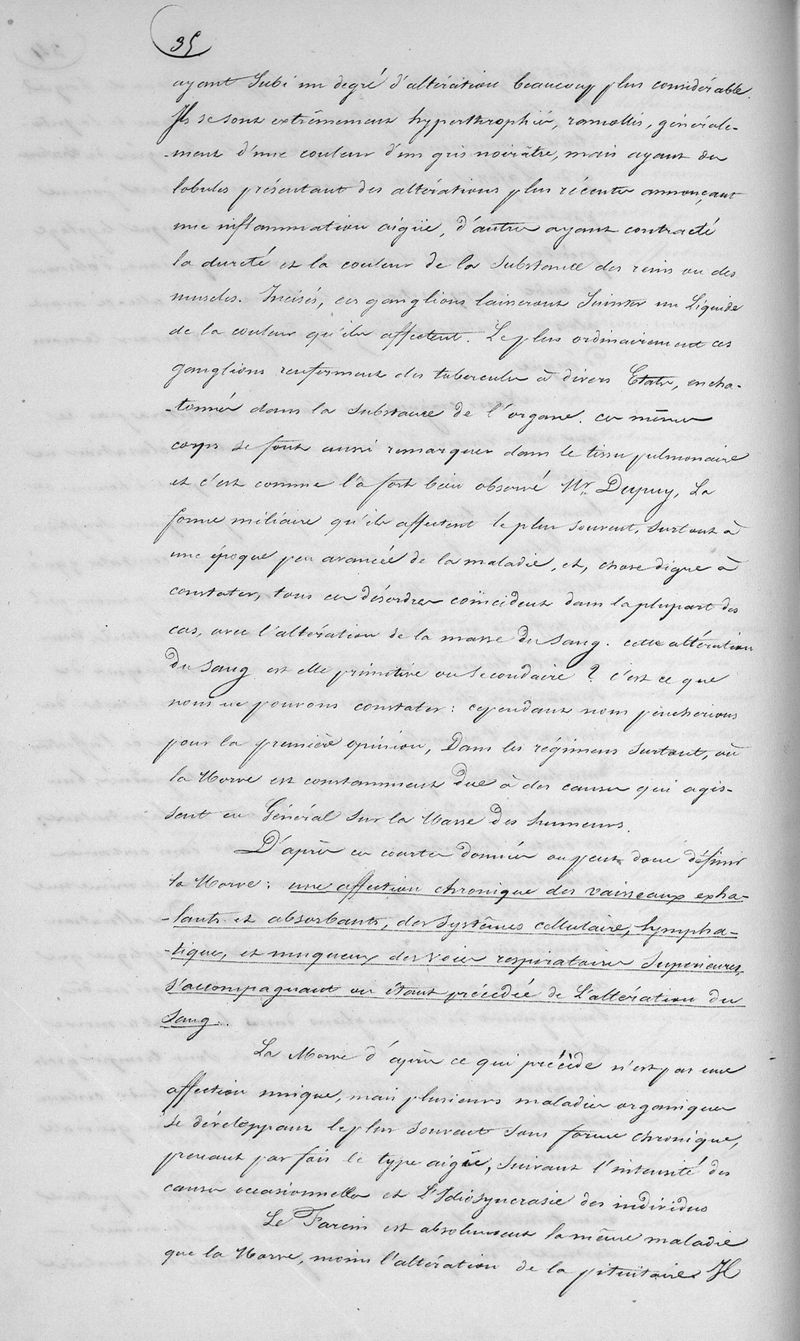 35
ayant subi un degré d'altération beaucoup plus considérable.
Ils se sont extrêmement hyperthrophiés, ramollis, générale-
-ment d'une couleur d'un gris noirâtre, mais ayant des
lobules présentant des altérations plus récentes annonçant
une inflammation aigüe, d'autres ayant contracté
la dureté et la couleur de la substance des reins ou des
muscles. Incisés, ces ganglions laisseront suinter un Liquide
de la couleur qu'ils affectent. Le plus ordinairement ces
ganglions renferment des tubercules à divers Etats, encha-
-tonnés dans la substance de l'organe. ces mêmes
corps se font aussi remarquer dans le tissu pulmonaire
et c'est comme l'à fort bien observé Mr. Dupuy, La
forme miliaire qu'ils affectent le plus souvent, surtout à
une époque peu avancée de la maladie, et, chose digne à
constater, tous ces désordres coïncident dans la plupart des
cas, avec l'altération de la masse du sang. cette altération
du sang est elle primitive ou secondaire ? c'est ce que
nous ne pouvons constater : cependant nous pencherions
pour la première opinion, Dans les régimens surtout, où
la Morve est constamment due à des causes qui agis-
sent en Général sur la Masse des humeurs.
D'après ces courtes données on peut donc définir
la Morve : une affection chronique des vaisseaux exha-
-lants et absorbants, des systêmes cellulaire, lympha-
-tique, et muqueux des voies respiratoires supérieures,
s'accompagnant ou étant précédée de L'altération du
sang.
La Morve d'après ce qui précède n'est pas une
affection unique, mais plusieurs maladies organiques
se développant le plus souvent sous forme chronique,
prenant par fois le type aigüe, suivant l'intensité des
causes occasionnelles et L'Idiosyncrasie des individus
Le Farcin est absolument la même maladie
que la Morve, moins l'altération de la pituitaire. Il